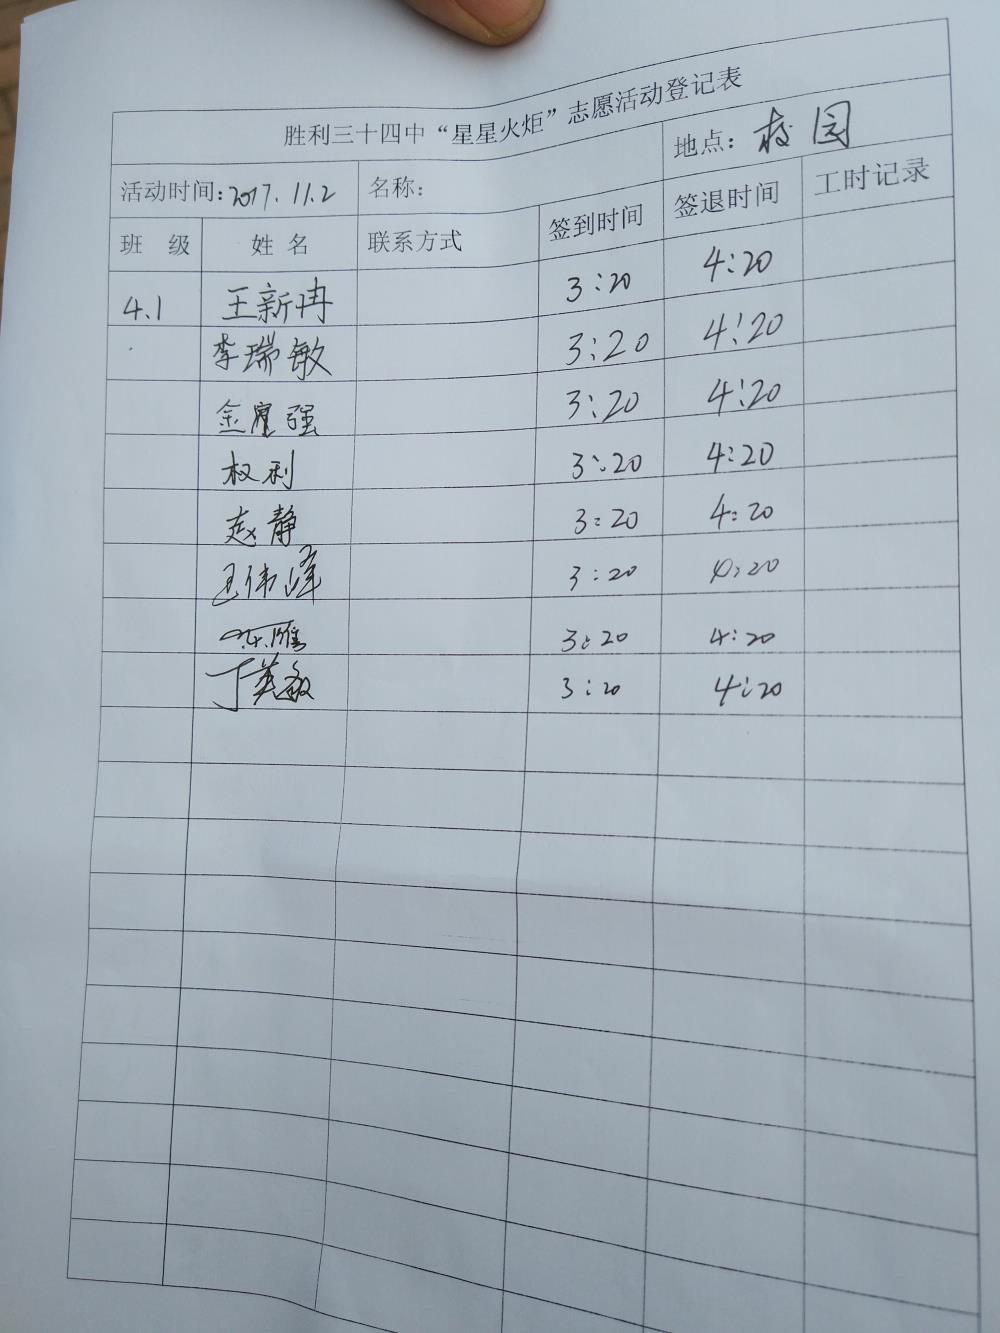 胜利三十四中“星星火炬”志愿活动登记表
活动时间:2017.11.2 名称: 地点: 校园
班 级 姓 名 联系方式 签到时间 签退时间 工时记录
4.1 王新冉 3:20 4:20
李瑞敏 3:20 4:20
金 强 3:20 4:20
权利 3:20 4:20
赵静 3:20 4:20
王伟峰 3:20 4:20
3:20 4:20
丁英敏 3:20 4:20